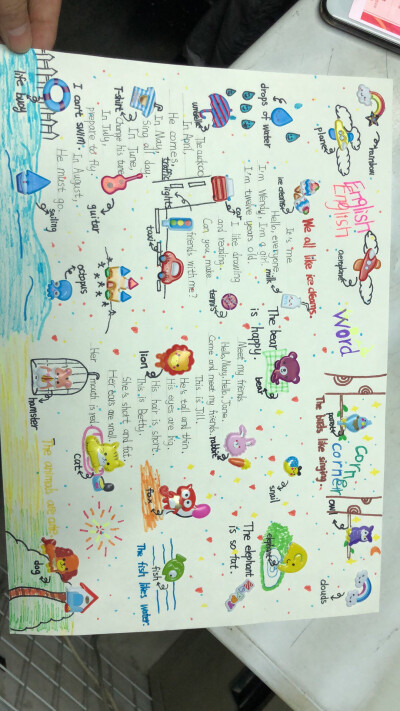 rainbow
plane
English
English
aeroplane
word
corn
corner
parrot
owl
The birds like singing.
clouds
drops of water
ice cream
We all like ice creams.
milk
The bear
is happy.
bear
snail
elephant
The elephant
is so fat.
umbrella
It is me
Hello, everyone.
I'm Wendy. I'm a girl.
I'm twelve years old.
car
I like drawing
and reading.
Can you make
friends with me?
tennis
Meet my friends
Hello, Mary. Hello, Jane.
Come and meet my friends.
This is Jill.
He's tall and thin.
His eyes are big.
His hair is short.
This is Betty.
She's short and fat.
Her ears are small.
Her mouth is red.
rabbit
lion
fox
fish
The fish likes water.
The cuckoo
In April,
He comes.
In May,
Sing all day.
In June,
Change his tune
In July,
prepare to fly.
In August,
He must go.
T-shirt
traffic lights
taxi
guitar
cat
life buoy
I can't swim.
sailing
octopus
hamster
The animals are cute.
dog